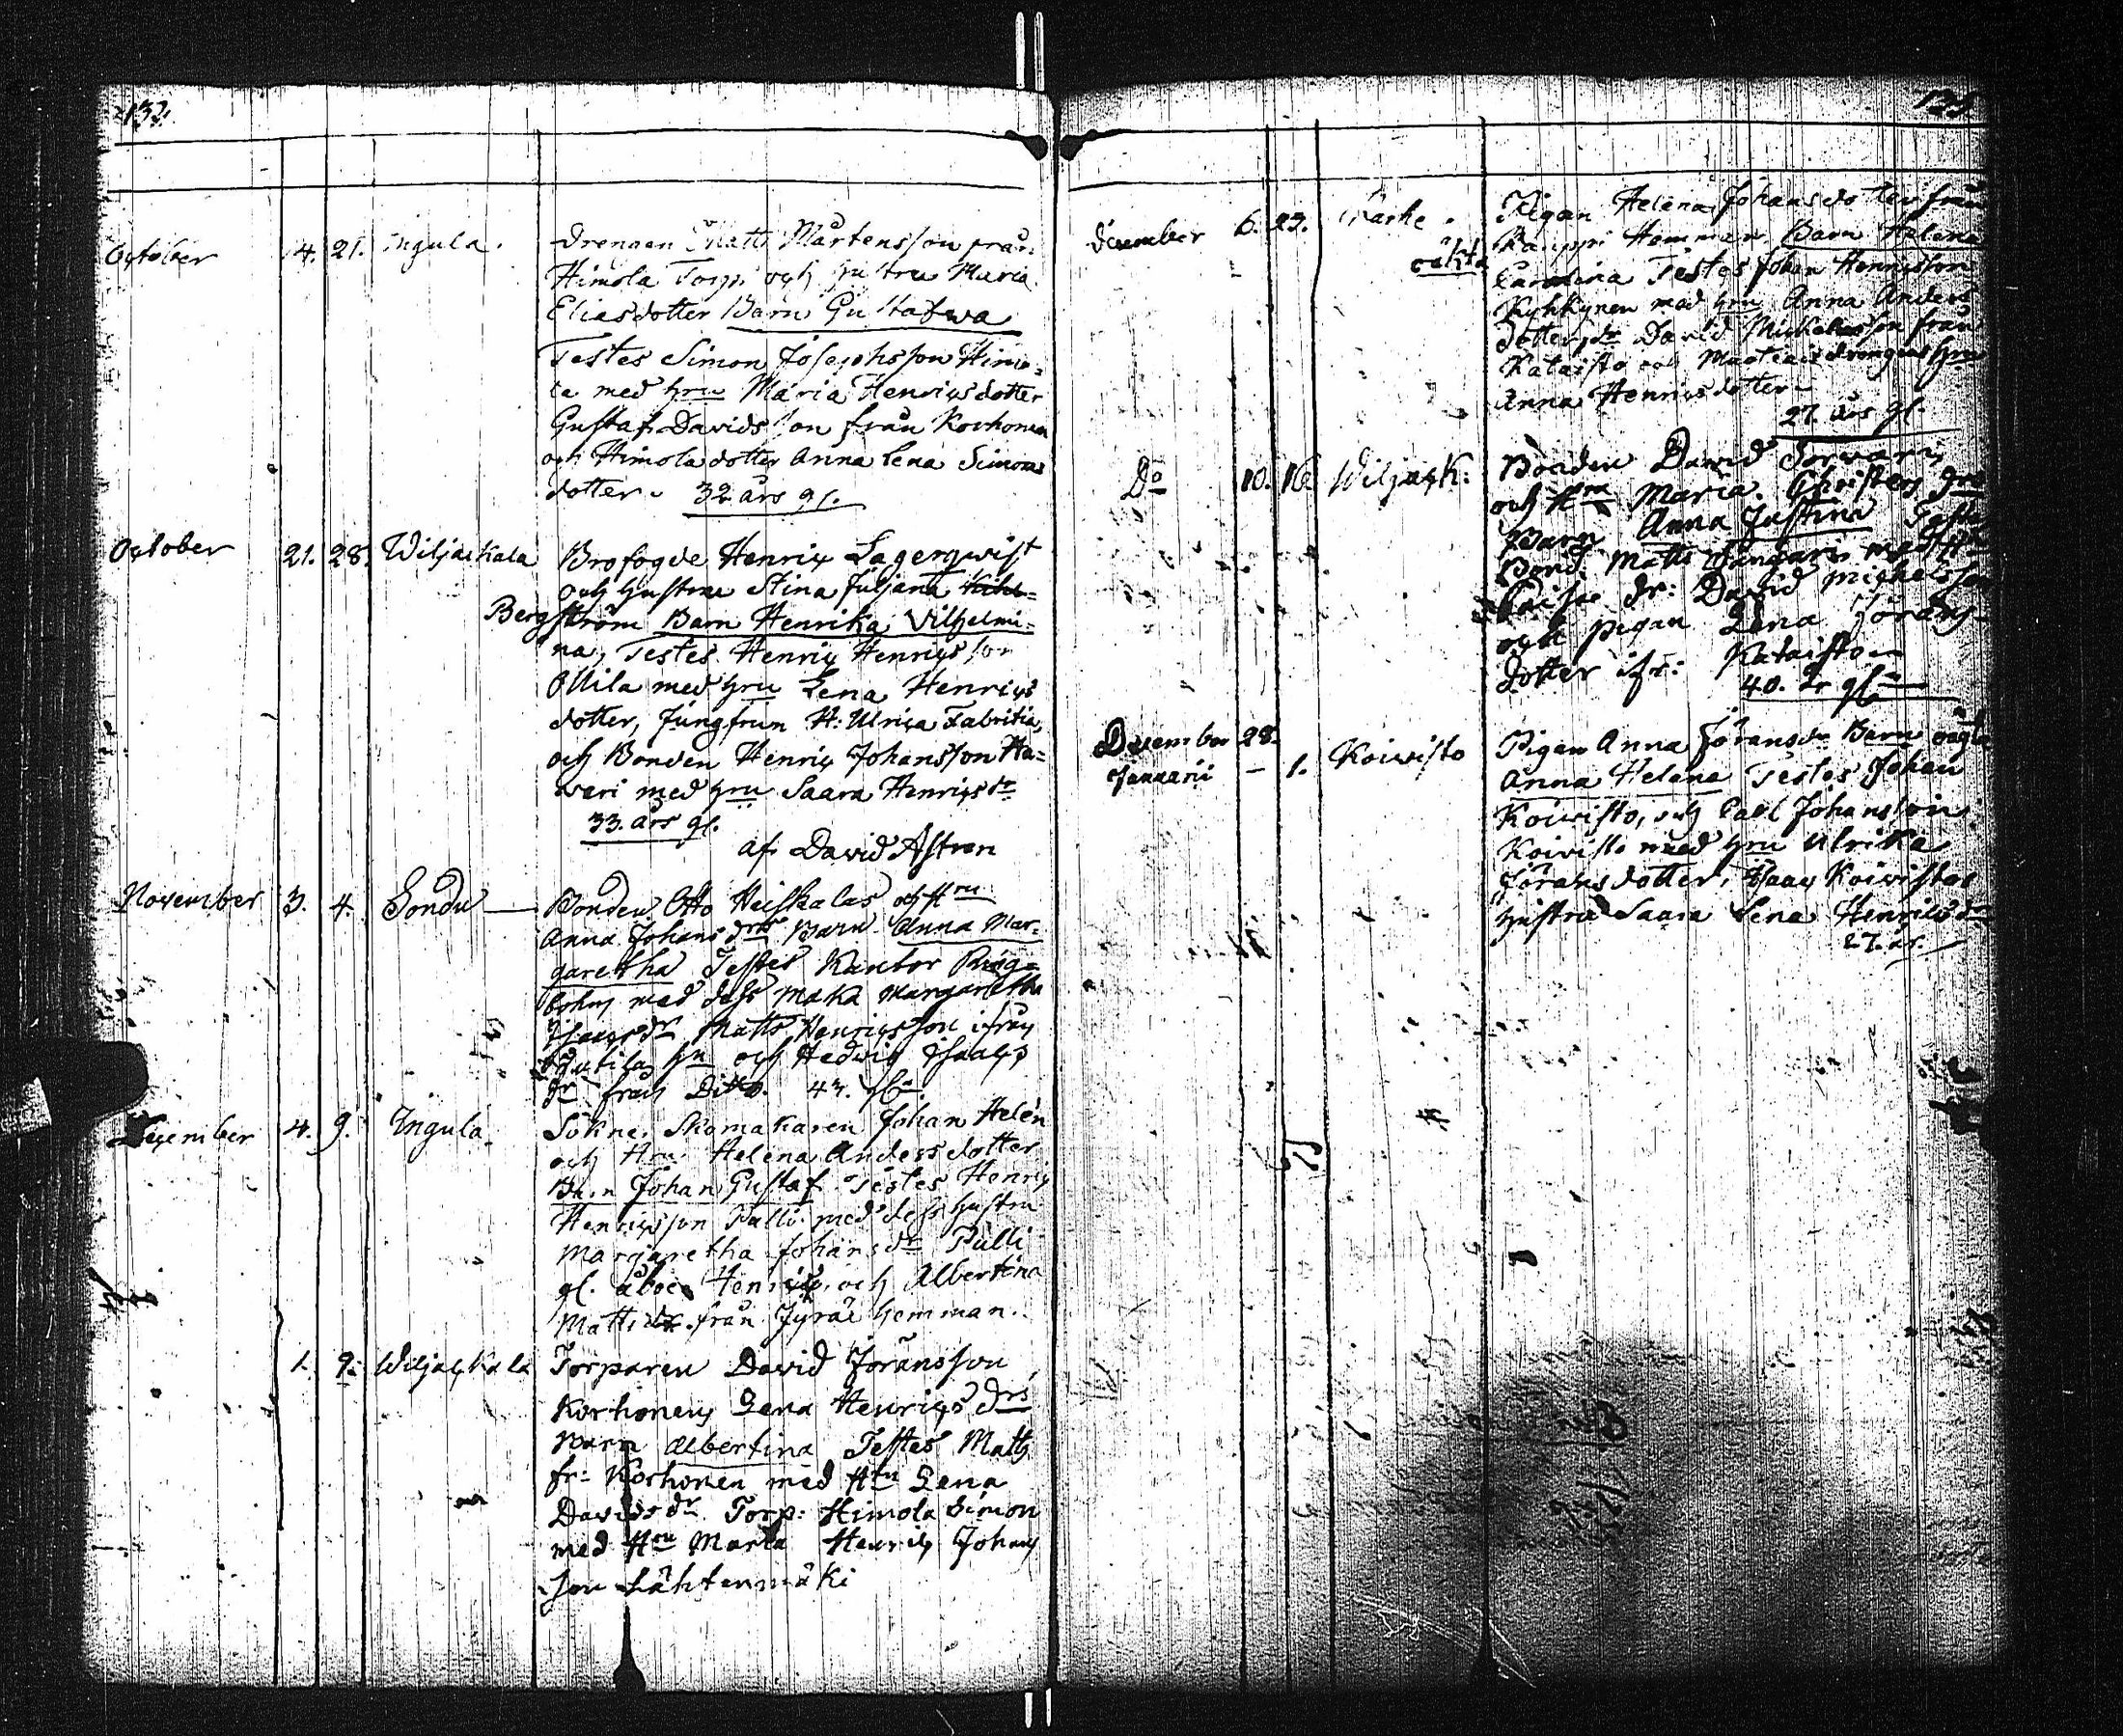 132.
October 14. 21. Ingula. Drengen Matts Mårtensson från
Himola Torp och hustru Maria
Eliasdotter Barn Gustafwa
Testes Simon Josephsson Himo=
la med hru Maria Henricsdotter
Gustaf Davidsson från Korhonen
och Himola dotter Anna Lena Simons
dotter. 32 års gl.
October 21. 28. Wiljackala Brofogde Henric Lagerqwist
och hustru Stina Juliana
Bergström Barn Henrika Vilhelmi=
na, Testes Henric Henricsson
Ollila med hru Lena Henrics
dotter, Jungfrun H: Ulrica Fabritia,
och Bonden Henric Johansson Ha=
wari med hru Saara Henricsdr
33. års gl.
af David Astren
November 3. 4. Sondu Bonden Otto Heiskalas och Hru
Anna Johans drs Barn Anna Mar=
garetha Testes Kantor
med dess maka Margaretha
Isaacsdr Matts Henricsson ifrån
hu och Hedwig Isaacs
dr från Ditto. 43. gl.
December 4. 9. Ingula. Sokne Skomakaren Johan Helén
och Hru Helena Andersdotter
Barn Johan Gustaf. Testes Henric
Henricsson Pulli med dess hustru
Margaretha Johansdr Pulli
gl. åboen Henric, och Albertina
Mattsdr från Jyräe hemman.
1. 9. Wiljackala Torparen David Joransson
Korhonens Lena Henrics drs
Barn Albertina Testes Matts
fr: Korhonen med Hru Lena
Davidsdr Torp: Himola Simon
med Hru Maria Henric Johans
son Lähtenmäki
December 6. 23. Pigan Helena Johansdotter från
oäkta Kauppi Hemman Barn Helena
Carolina Testes Johan Henricsson
Kyhkynen med hru Anna Anders
dotter, dr David Mickelsson från
Kataisto och
Anna Henricsdotter
27 års gl.
Do 10. 16. Wiljack: Bonden David Torwaris
och Hru Maria Christers drs
Barn Anna Justina Testes
Bond: Matts med Hu
dr: David Michelsson
och pigan Lena Jörans
dotter ifr: Kataisto
40. år gl
December 28. Pigan Anna Joransdr Barn oägta
Januarii – 1. Koivisto Anna Helena Testes Johan
Koivisto, och Carl Johansson
Koivisto med hru Ulrika
Joransdotter, Isaac Koivistos
hustru Saara Lena Henricsdr
27. år.